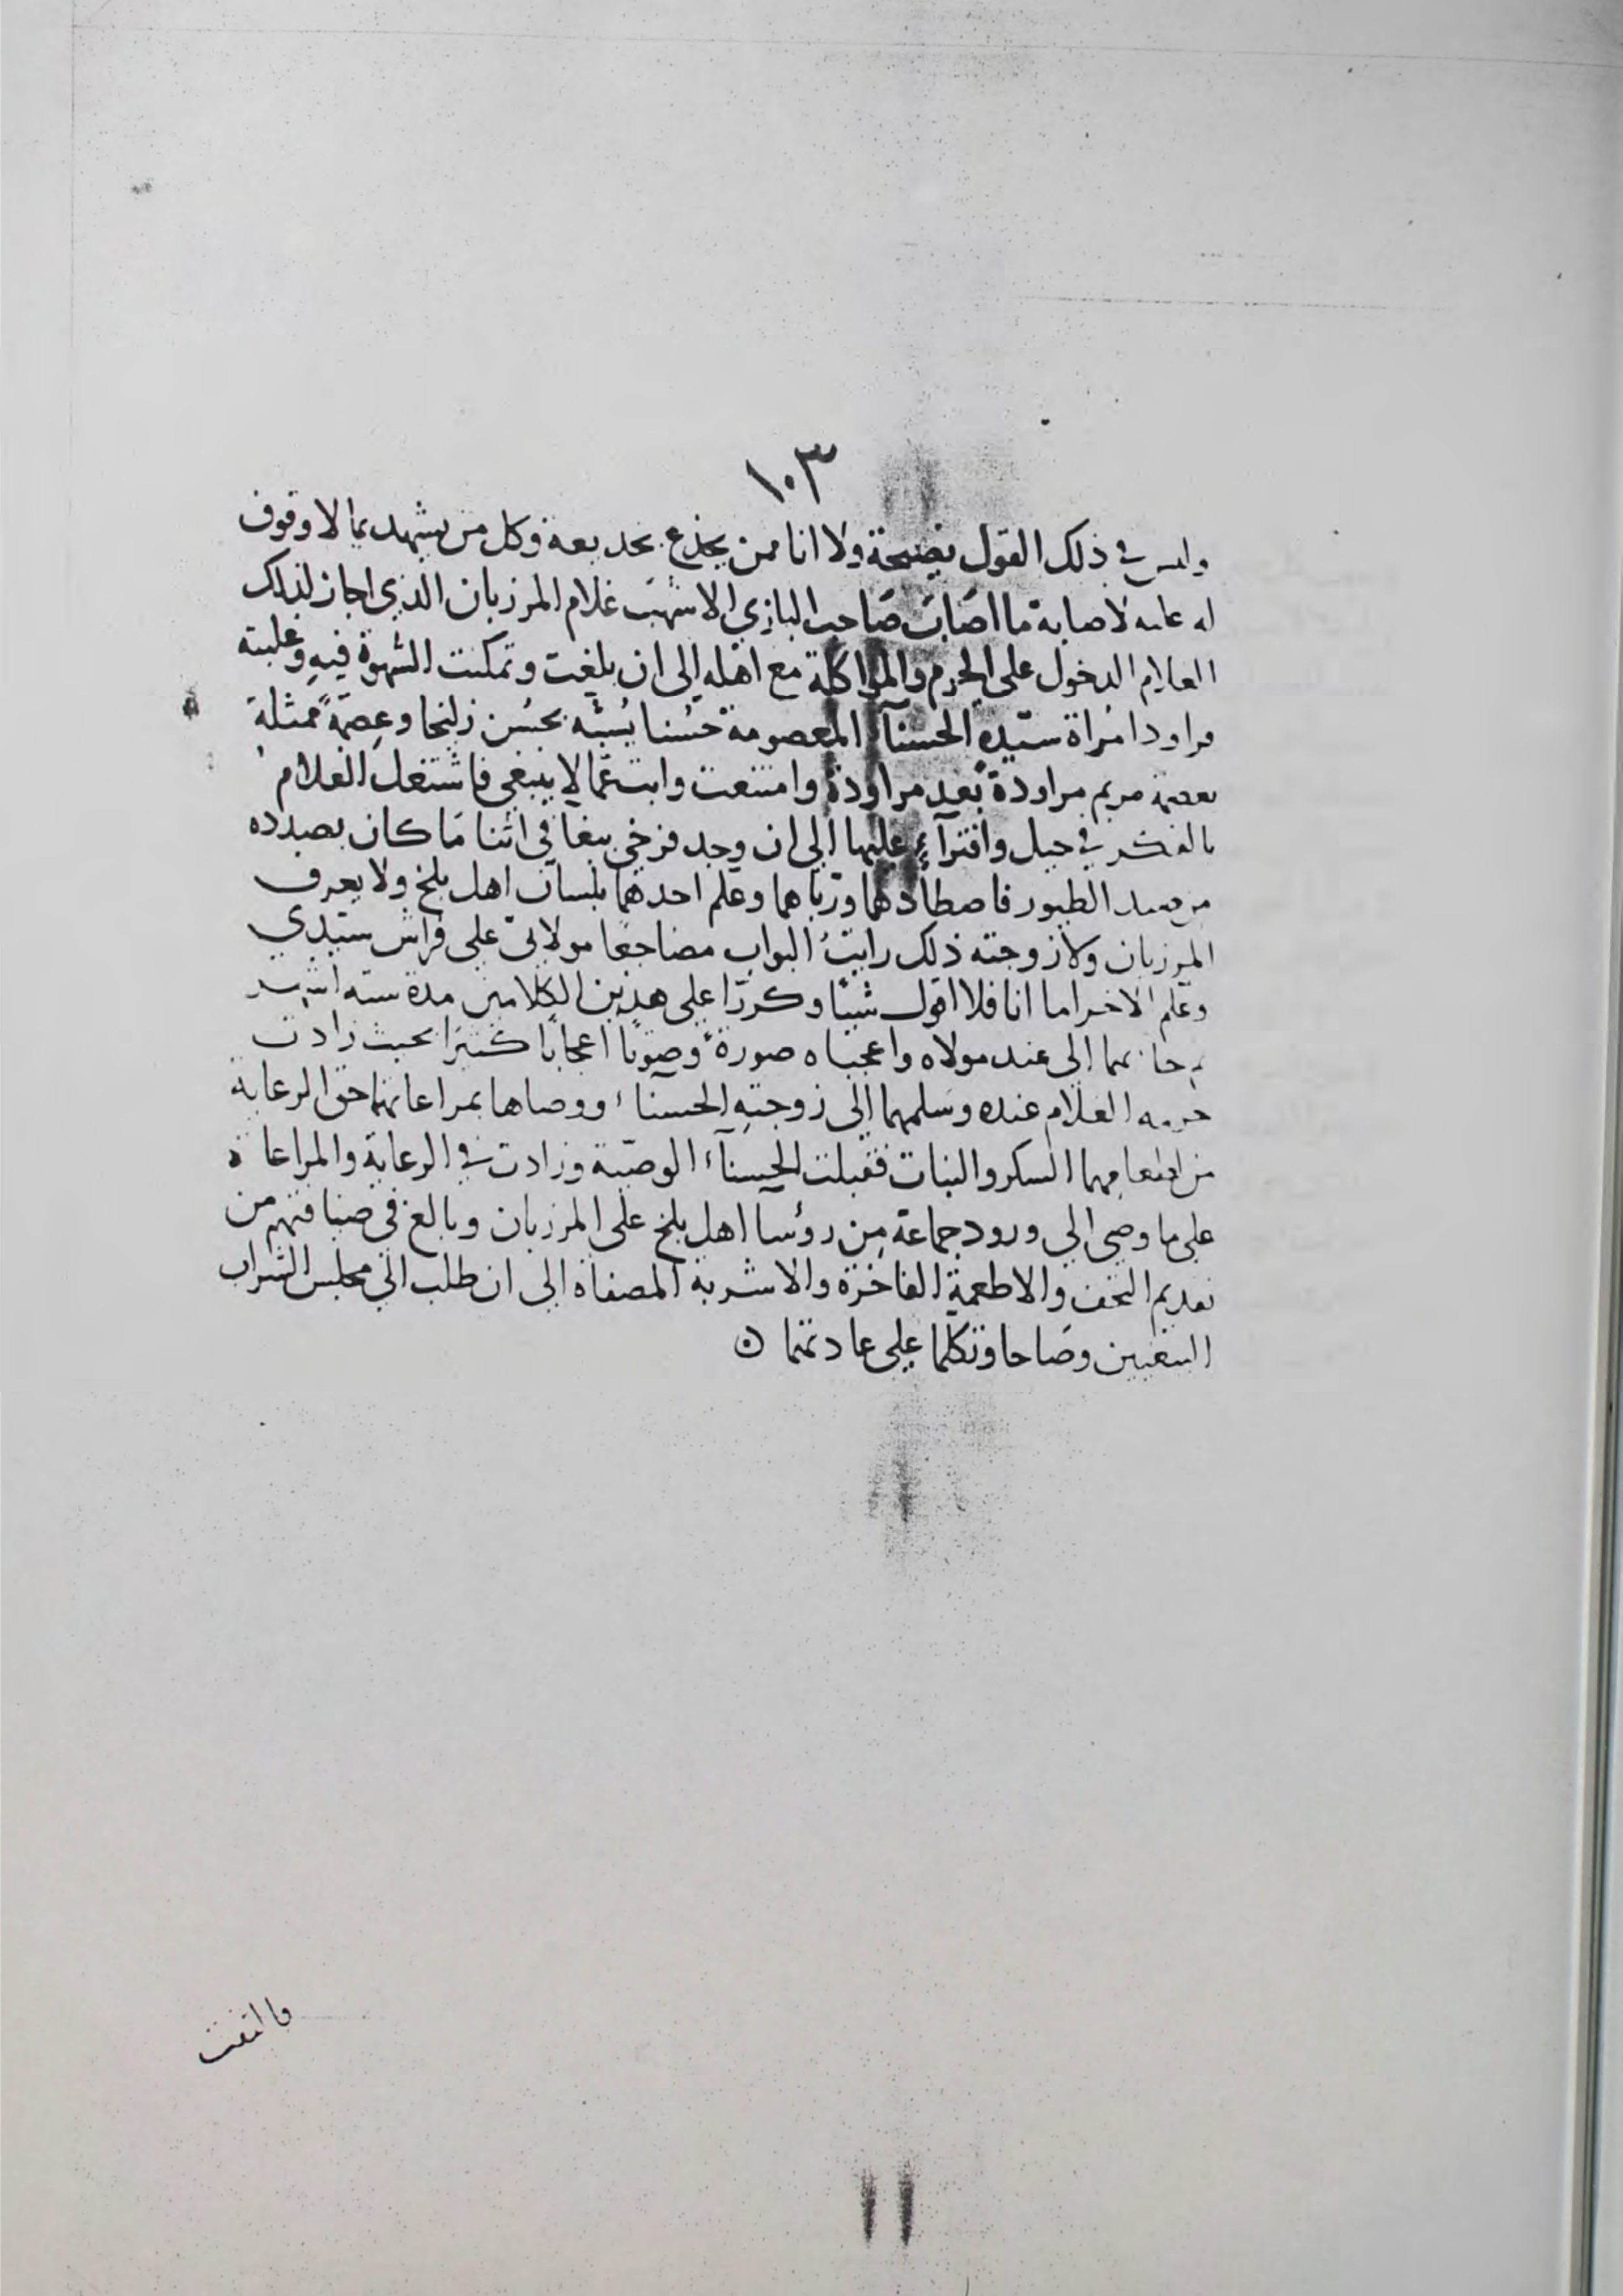 ١٠٣
وليس في ذلك القول بفضيحة ولا انا ممن يخدع بخديعة وكل من يشهد بما لا وقوف
له عليه لاصابه ما اصَابَ صَاحب البازي الاشهَب غلام المرزبان الذي اجاز لذلك
الغلام الدخول على الحرم والمواكلة مع اهله الى ان بلغت وتمكنت الشهوة فيه وغلبته
فراود امراة سيّده الحسنآء المعصومة حُسنا يُشبَّه بحُسن زليخا وعِصمَةً ممثلة
بعصمة مريم مراودة بَعد مراودة وامتنعت وابت عمّا لا ينبغي فاشتغل الغلام
بالفكر في حيل وافترآء عليها الى ان وجد فرخي ببغا في اثنا مَا كان بصدده
من صيد الطيور فاصطادهما وربّاهما وعلّم احدهما بلسان اهل بلخ ولا يعرف
المرزبان ولا زوجته ذلك رايتُ البواب مضاجعًا مولاتي على فراش سيّدي
وعلّم الاخر اما انا فلا اقول شيئا وكررّا على هذين الكلامين مدة ستة اشهر
فجا بهما الى عند مولاه واعجباه صورة وصوتًا اعجابًا كثيرًا بحيث زادت
حرمه الغلام عنده وسَلمهما الى زوجتِهِ الحسنآء ووصاها بمراعاتهما حق الرعاية
من اطعامهما السكر والنبات فقبلت الحسنآء الوصيّة وزادت في الرعاية والمراعاة
على ما وصى الى ورود جماعة مِن رؤسا اهل بلخ على المرزبان وبالغ في ضيافتهم من
تقديم التحف والاطعمة الفاخرة والاشربة المصفاة الى ان طلب الى مجلس الشراب
الببغيين وصَاحا وتكلما على عادتهما ن
فالتفت